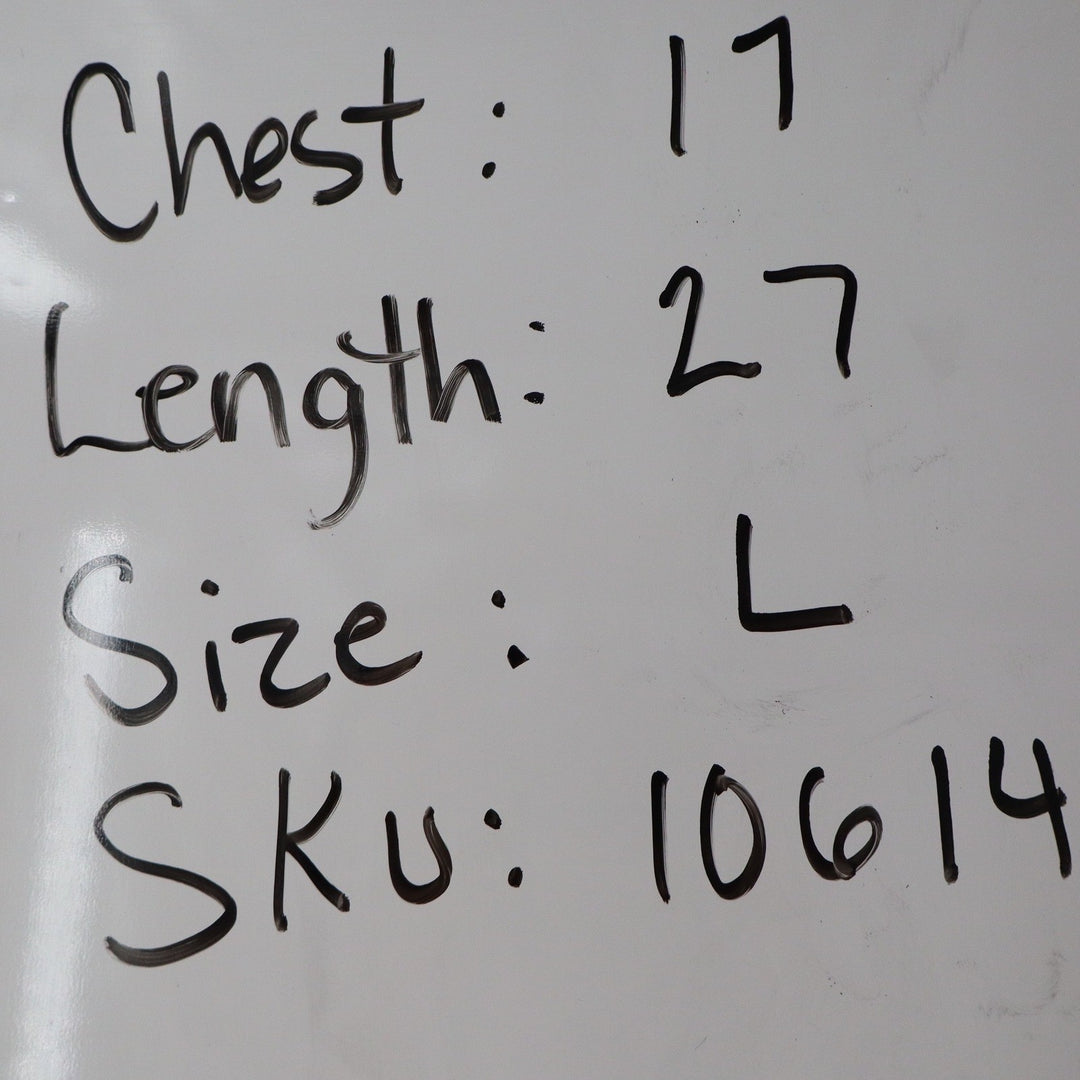 Chest: 17
Length: 27
Size: L
SKU: 10614